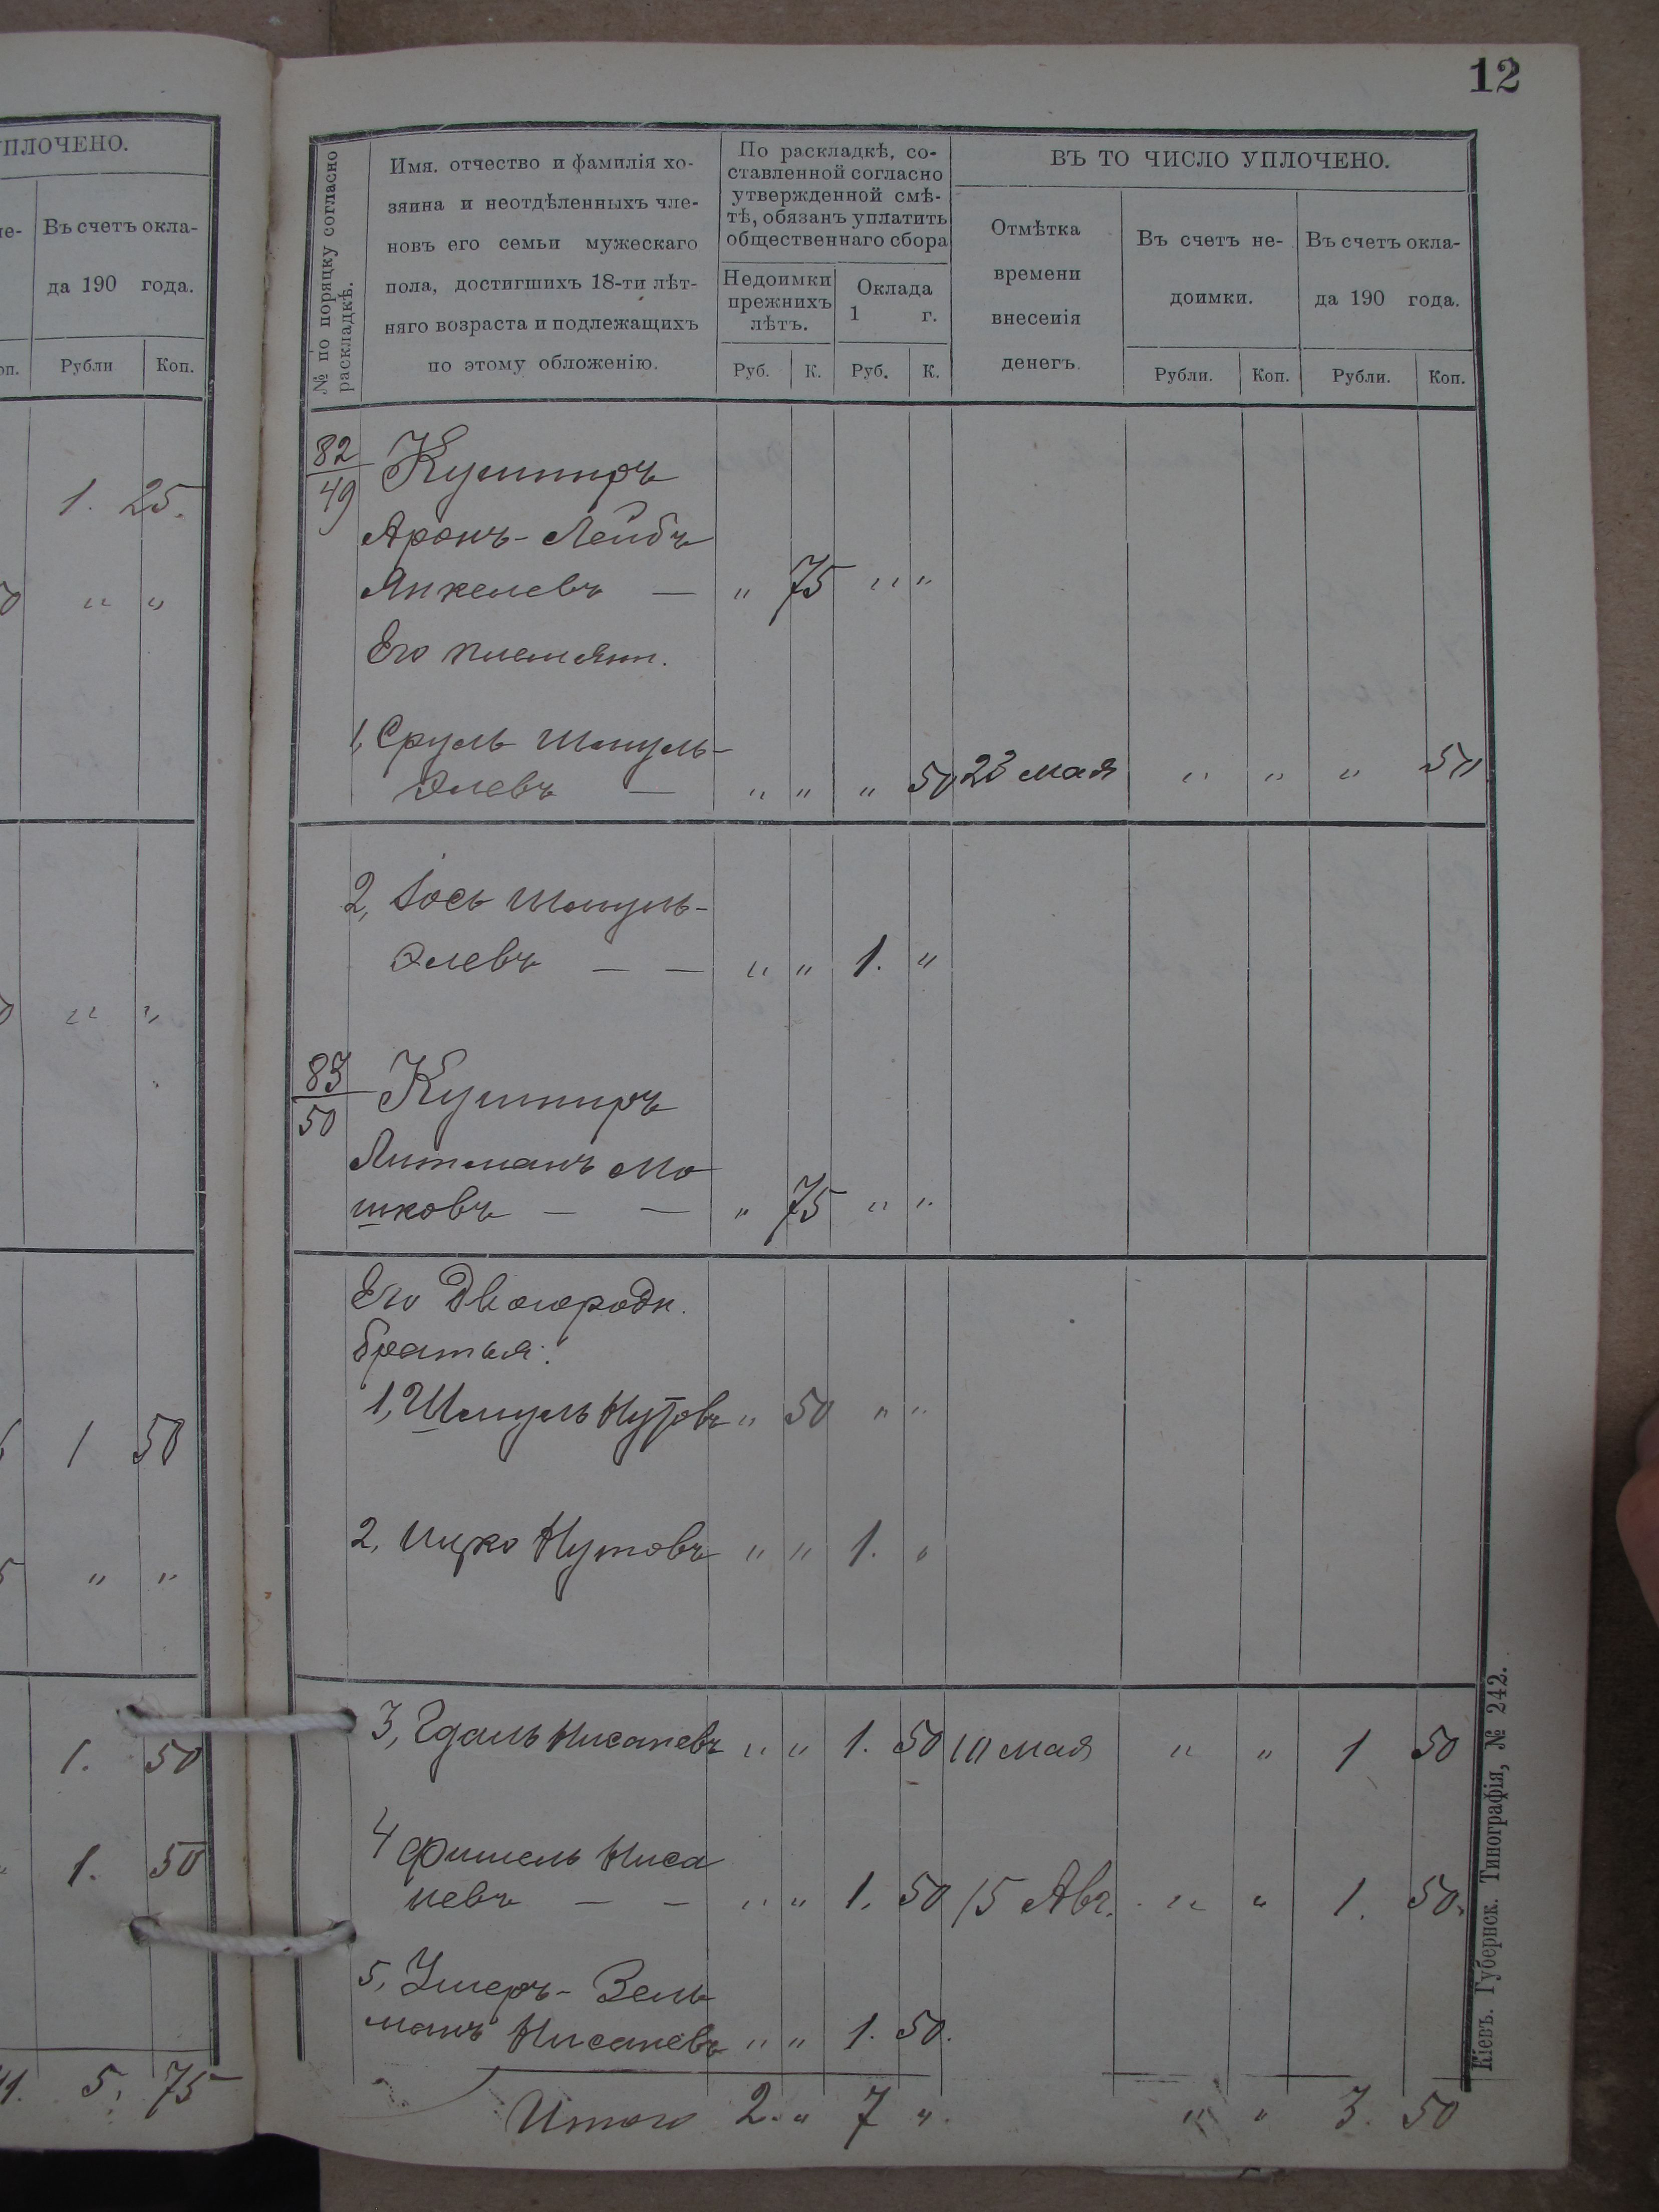 УПЛОЧЕНО.
Въ счетъ окла-
да 190 года.
Рубли Коп.
1. 25.
" "
" "
1 50
" "
1. 50
1. 50
5, 75
12
№ по порядку согласно
раскладкѣ.
Имя, отчество и фамилія хо-
зяина и неотдѣленныхъ чле-
новъ его семьи мужескаго
пола, достигшихъ 18-ти лѣт-
няго возраста и подлежащихъ
по этому обложенію.
По раскладкѣ, со-
ставленной согласно
утвержденной смѣ-
тѣ, обязанъ уплатить
общественнаго сбора
Недоимки
прежнихъ
лѣтъ.
Руб. К.
Оклада
1 г.
Руб. К.
ВЪ ТО ЧИСЛО УПЛОЧЕНО.
Отмѣтка
времени
внесенія
денегъ.
Въ счетъ не-
доимки.
Рубли. Коп.
Въ счетъ окла-
да 190 года.
Рубли. Коп.
82
49
Кушниръ
Аронъ-Лейбъ
Янкелевъ — " 75 " "
Его племянн.
1, Сруль Шмуль-
Элевъ — " " " 50 23 мая " " " 50
2, Іось Шмуль-
Элевъ — — " " 1. "
83
50
Кушниръ
Литманъ Мо
шковъ — — " 75 " "
Его Двоюродн.
братья:
1, Шмуль Нутовъ " 50 " "
2, Ицко Нутовъ " " 1. "
3, Гдаль Нисаневъ " " 1. 50 10 мая " " 1 50
4 Фишель Ниса
невъ — — " " 1. 50 15 Авг. " " 1. 50.
5, Ушеръ-Зель
манъ Нисаневъ " " 1. 50.
Итого 2. " 7 ". " " 3. 50
Кіевъ. Губернск. Типографія, № 242.